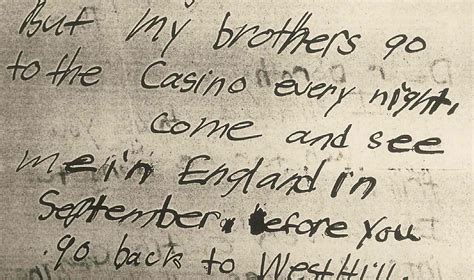 But my brothers go
to the Casino every night,
come and see
me in England in
September. before you
go back to West Hill